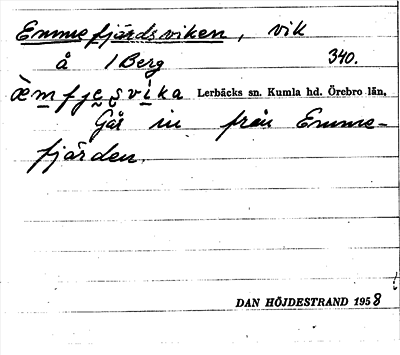 Emmefjärdsviken, vik
å 1 Berg 340.
Lerbäcks sn. Kumla hd. Örebro län.
Går in från Emme-
fjärden.
DAN HÖJDESTRAND 1958